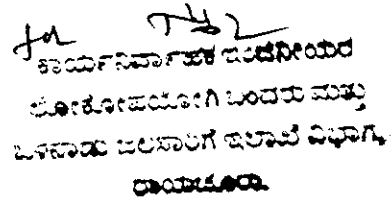 for
ಕಾರ್ಯನಿರ್ವಾಹಕ ಇಂಜಿನೀಯರ
ಲೋಕೋಪಯೋಗಿ ಬಂದರು ಮತ್ತು
ಒಳನಾಡು ಜಲಸಾರಿಗೆ ಇಲಾಖೆ ವಿಭಾಗ,
ರಾಯಚೂರು.